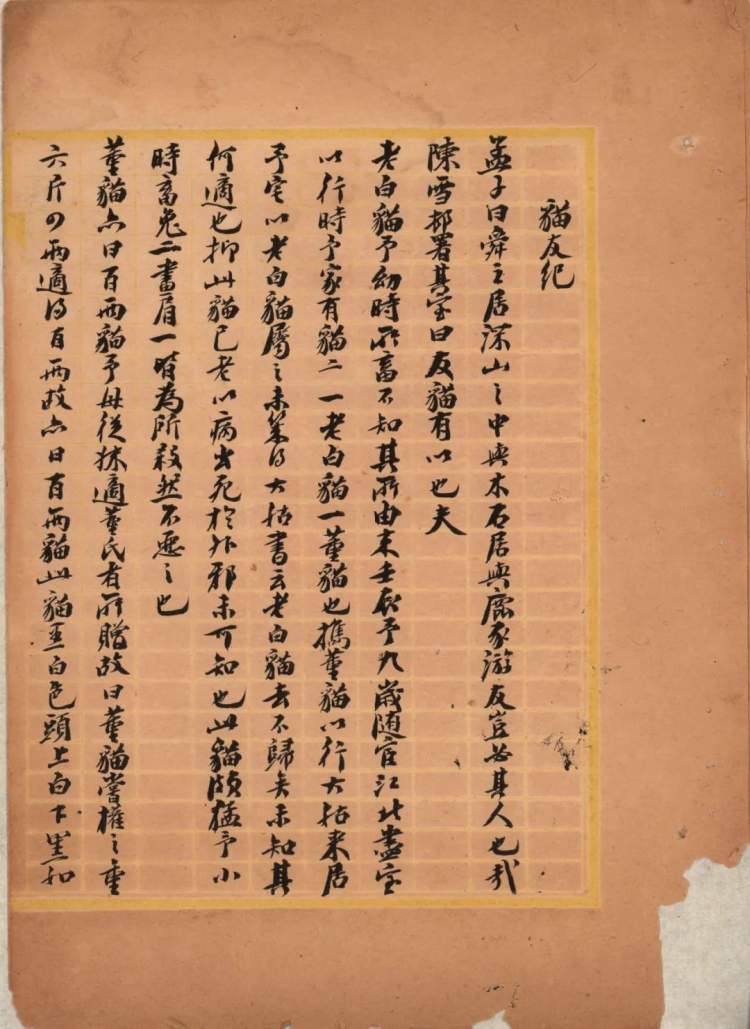 貓友紀
孟子曰舜之居深山之中與木石居與鹿豕游友豈必其人也哉
陳雪邨署其室曰友貓有以也夫
老白貓予幼時所畜不知其所由來壬辰予九歲随官江北盡室
以行時予家有貓二一老白貓一董貓也攜董貓以行大姑來居
予宅以老白貓屬之未幾得大姑書云老白貓去不歸矣未知其
何適也抑此貓已老以病出死於外邪未可知也此貓頗猛予小
時畜兔二畫眉一皆為所殺然不惡之也
董貓亦曰百兩貓予母從妹適董氏者所贈故曰董貓嘗權之重
六斤四兩適得百兩故亦曰百兩貓此貓黑白色頭上白下黑如